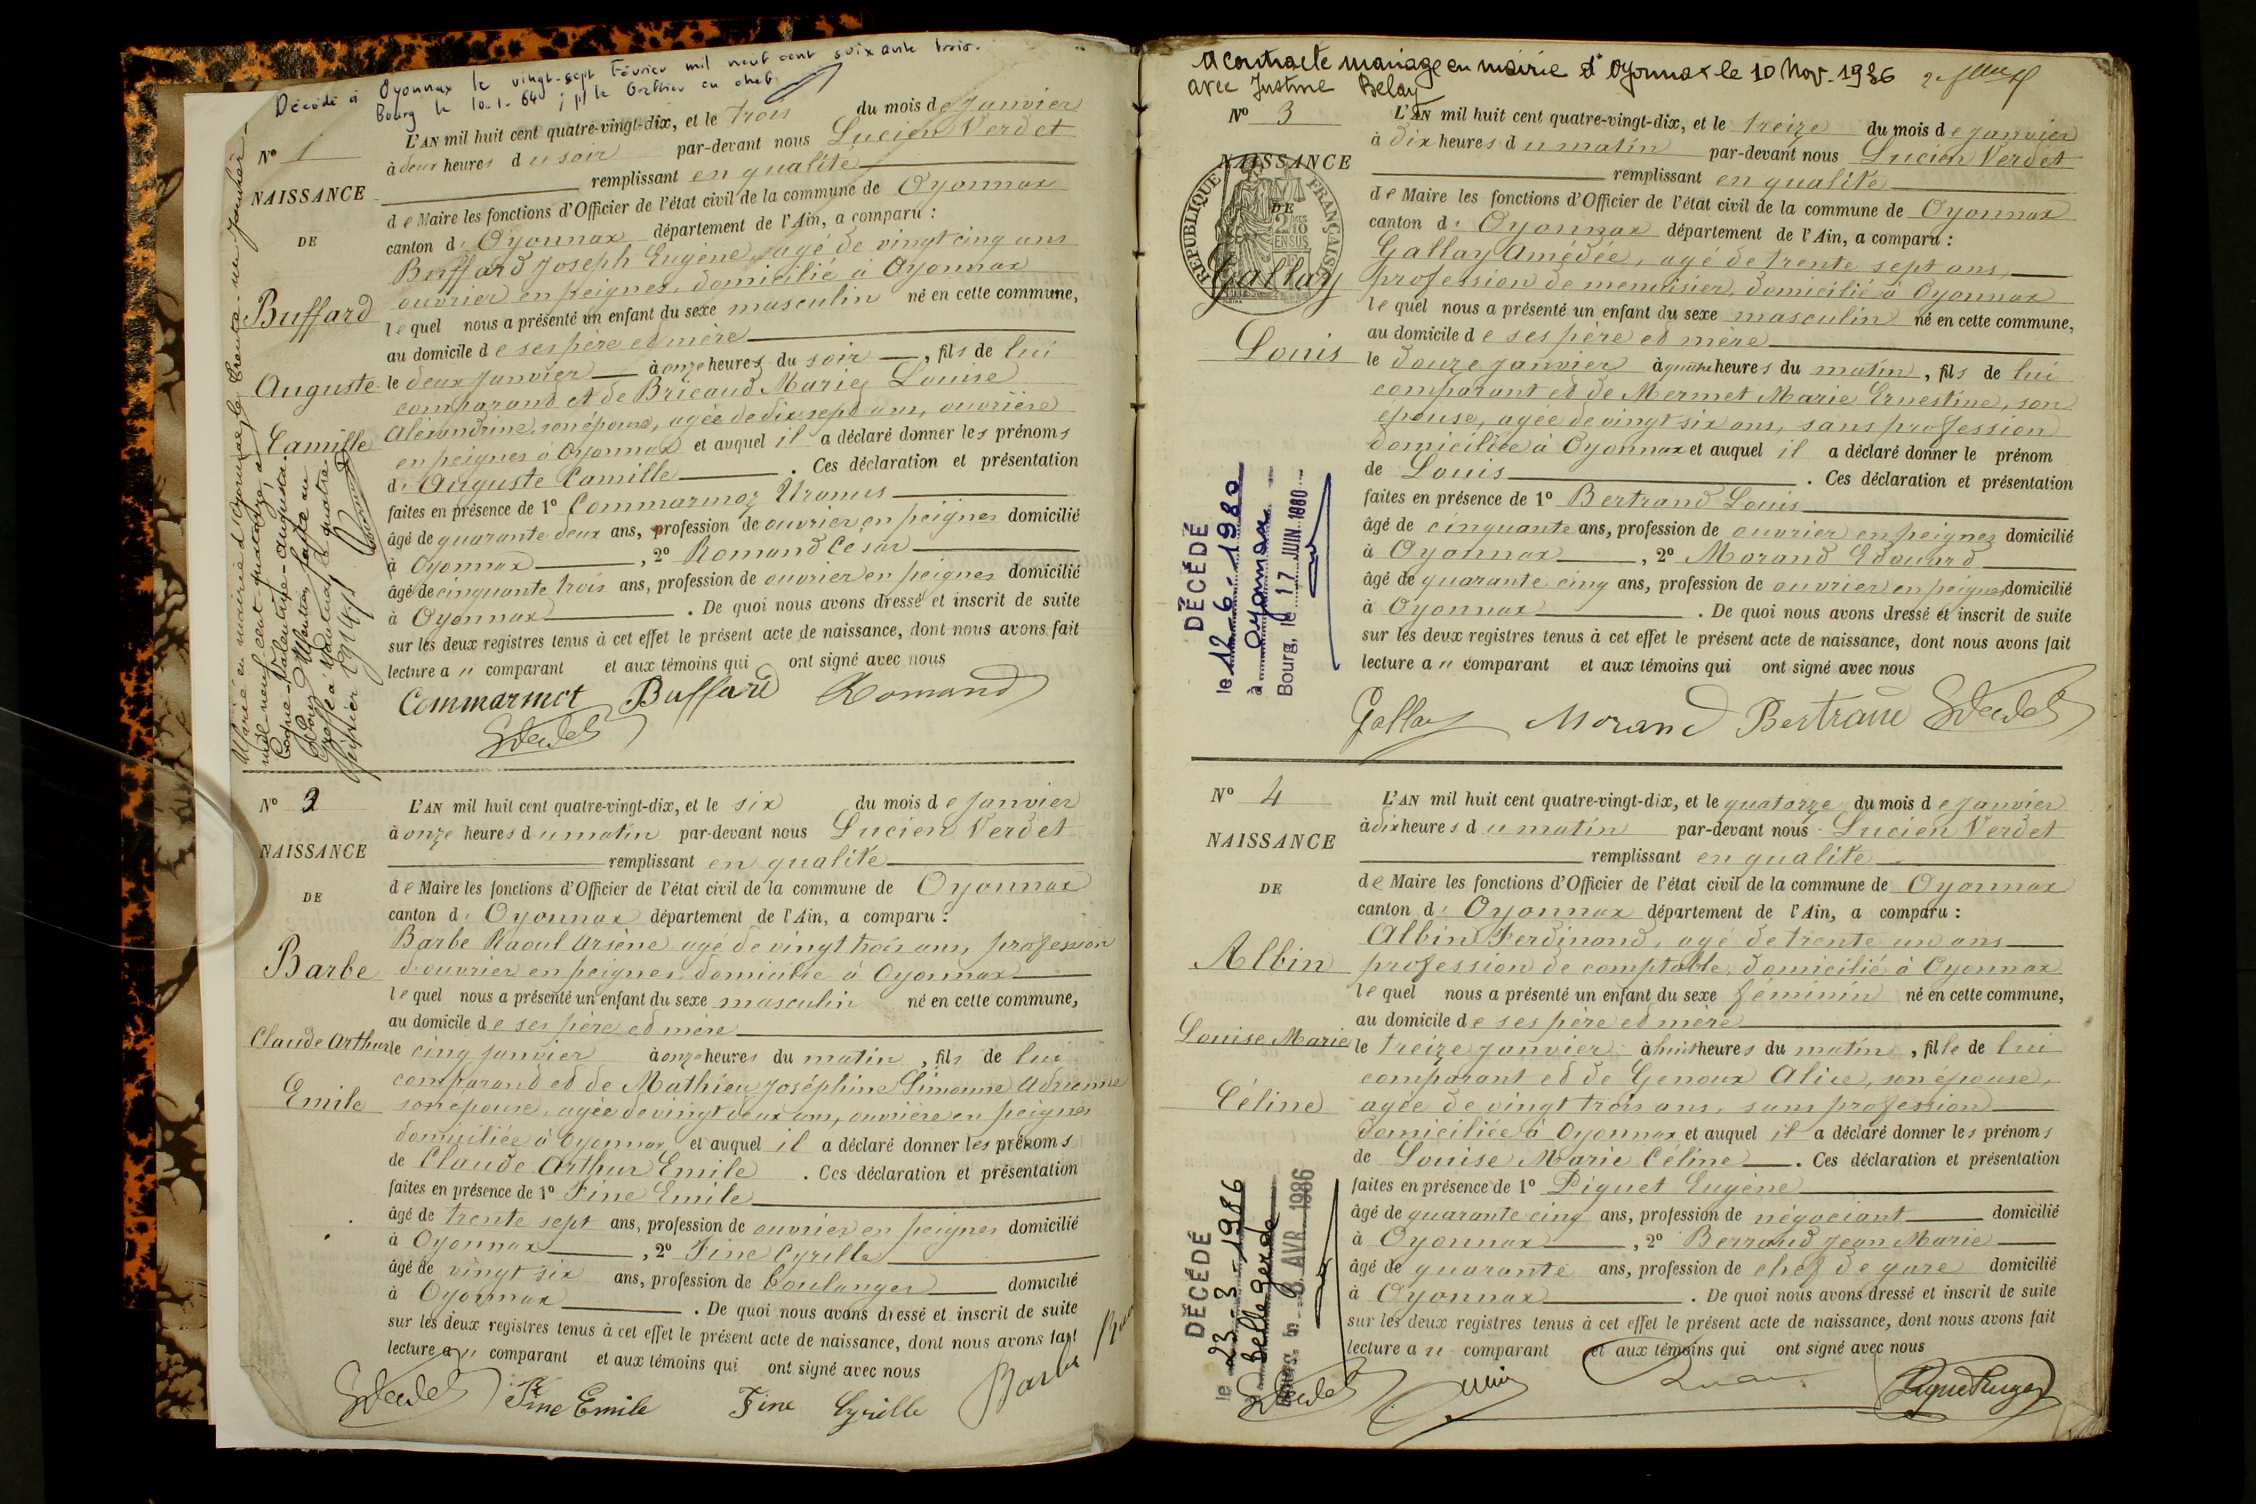 Décédé à Oyonnax le vingt-sept Février mil neuf cent soixante trois.
Bourg le 10-1-64 ; le Greffier en chef
N° 1
NAISSANCE
DE
Buffard
Auguste
Camille
Marié en mairie d'Oyonnax le trente-un janvier
mil neuf cent quatorze, à
Valentine-Augusta.
Mention faite au
Greffe à Nantua, le quatre
février 1914
L'AN mil huit cent quatre-vingt-dix, et le trois du mois de Janvier
à deux heures du soir par-devant nous Lucien Verdet
remplissant en qualité
de Maire les fonctions d'Officier de l'état civil de la commune de Oyonnax
canton d' Oyonnax département de l'Ain, a comparu :
Buffard Joseph Eugène, agé de vingt cinq ans
ouvrier en peignes, domicilié à Oyonnax
lequel nous a présenté un enfant du sexe masculin né en cette commune,
au domicile de ses père et mère
le deux Janvier à onze heures du soir, fils de lui
comparant et de Bricaud Marie Louise
Alexandrine, son épouse, agée de dix sept ans, ouvrière
en peignes à Oyonnax et auquel il a déclaré donner les prénoms
d' Auguste Camille. Ces déclaration et présentation
faites en présence de 1° Commarmoz Uranus
âgé de quarante deux ans, profession de ouvrier en peignes domicilié
à Oyonnax, 2° Romand César
âgé de cinquante trois ans, profession de ouvrier en peignes domicilié
à Oyonnax. De quoi nous avons dressé et inscrit de suite
sur les deux registres tenus à cet effet le présent acte de naissance, dont nous avons fait
lecture au comparant et aux témoins qui ont signé avec nous
Buffard Romand
N° 2
NAISSANCE
DE
Barbe
Claude Arthur
Emile
L'AN mil huit cent quatre-vingt-dix, et le six du mois de Janvier
à onze heures du matin par-devant nous Lucien Verdet
remplissant en qualité
de Maire les fonctions d'Officier de l'état civil de la commune de Oyonnax
canton d' Oyonnax département de l'Ain, a comparu :
Barbe Raoul Arsène agé de vingt trois ans, profession
d'ouvrier en peignes, domicilié à Oyonnax
lequel nous a présenté un enfant du sexe masculin né en cette commune,
au domicile de ses père et mère
le cinq Janvier à onze heures du matin, fils de lui
comparant et de Mathieu Joséphine Simonne Adrienne
son épouse, agée de vingt deux ans, ouvrière en peignes
domiciliée à Oyonnax et auquel il a déclaré donner les prénoms
de Claude Arthur Emile. Ces déclaration et présentation
faites en présence de 1° Fine Emile
âgé de trente sept ans, profession de ouvrier en peignes domicilié
à Oyonnax, 2° Fine Cyrille
âgé de vingt six ans, profession de boulanger domicilié
à Oyonnax. De quoi nous avons dressé et inscrit de suite
sur les deux registres tenus à cet effet le présent acte de naissance, dont nous avons fait
lecture au comparant et aux témoins qui ont signé avec nous
Fine Emile Fine Cyrille Barbe
A contracté mariage en mairie d'Oyonnax le 10 Nov. 1936
avec Justine Belay
N° 3
NAISSANCE
DE
RÉPUBLIQUE FRANÇAISE
Gallay
Louis
DÉCÉDÉ
le 12-6-1980
à Oyonnax
Bourg, le 17 JUIN 1980
L'AN mil huit cent quatre-vingt-dix, et le treize du mois de Janvier
à dix heures du matin par-devant nous Lucien Verdet
remplissant en qualité
de Maire les fonctions d'Officier de l'état civil de la commune de Oyonnax
canton d' Oyonnax département de l'Ain, a comparu :
Gallay Amédée, agé de trente sept ans,
profession de menuisier, domicilié à Oyonnax
lequel nous a présenté un enfant du sexe masculin né en cette commune,
au domicile de ses père et mère
le douze Janvier à quatre heures du matin, fils de lui
comparant et de Mermet Marie Ernestine, son
épouse, agée de vingt six ans, sans profession
domiciliée à Oyonnax et auquel il a déclaré donner le prénom
de Louis. Ces déclaration et présentation
faites en présence de 1° Bertrand Louis
âgé de cinquante ans, profession de ouvrier en peignes domicilié
à Oyonnax, 2° Morand Edouard
âgé de quarante cinq ans, profession de ouvrier en peignes domicilié
à Oyonnax. De quoi nous avons dressé et inscrit de suite
sur les deux registres tenus à cet effet le présent acte de naissance, dont nous avons fait
lecture au comparant et aux témoins qui ont signé avec nous
Gallay Morand Bertrand
N° 4
NAISSANCE
DE
Albin
Louise Marie
Céline
DÉCÉDÉ
le 23-3-1986
à Bellegarde
Bourg, le 8 AVR. 1986
L'AN mil huit cent quatre-vingt-dix, et le quatorze du mois de Janvier
à dix heures du matin par-devant nous Lucien Verdet
remplissant en qualité
de Maire les fonctions d'Officier de l'état civil de la commune de Oyonnax
canton d' Oyonnax département de l'Ain, a comparu :
Albin Ferdinand, agé de trente un ans
profession de comptable, domicilié à Oyonnax
lequel nous a présenté un enfant du sexe féminin né en cette commune,
au domicile de ses père et mère
le treize Janvier à huit heures du matin, fille de lui
comparant et de Genoux Alice, son épouse,
agée de vingt trois ans, sans profession
domiciliée à Oyonnax et auquel il a déclaré donner les prénoms
de Louise Marie Céline. Ces déclaration et présentation
faites en présence de 1° Piquet Eugène
âgé de quarante cinq ans, profession de négociant domicilié
à Oyonnax, 2° Berraud Jean Marie
âgé de quarante ans, profession de chef de gare domicilié
à Oyonnax. De quoi nous avons dressé et inscrit de suite
sur les deux registres tenus à cet effet le présent acte de naissance, dont nous avons fait
lecture au comparant et aux témoins qui ont signé avec nous